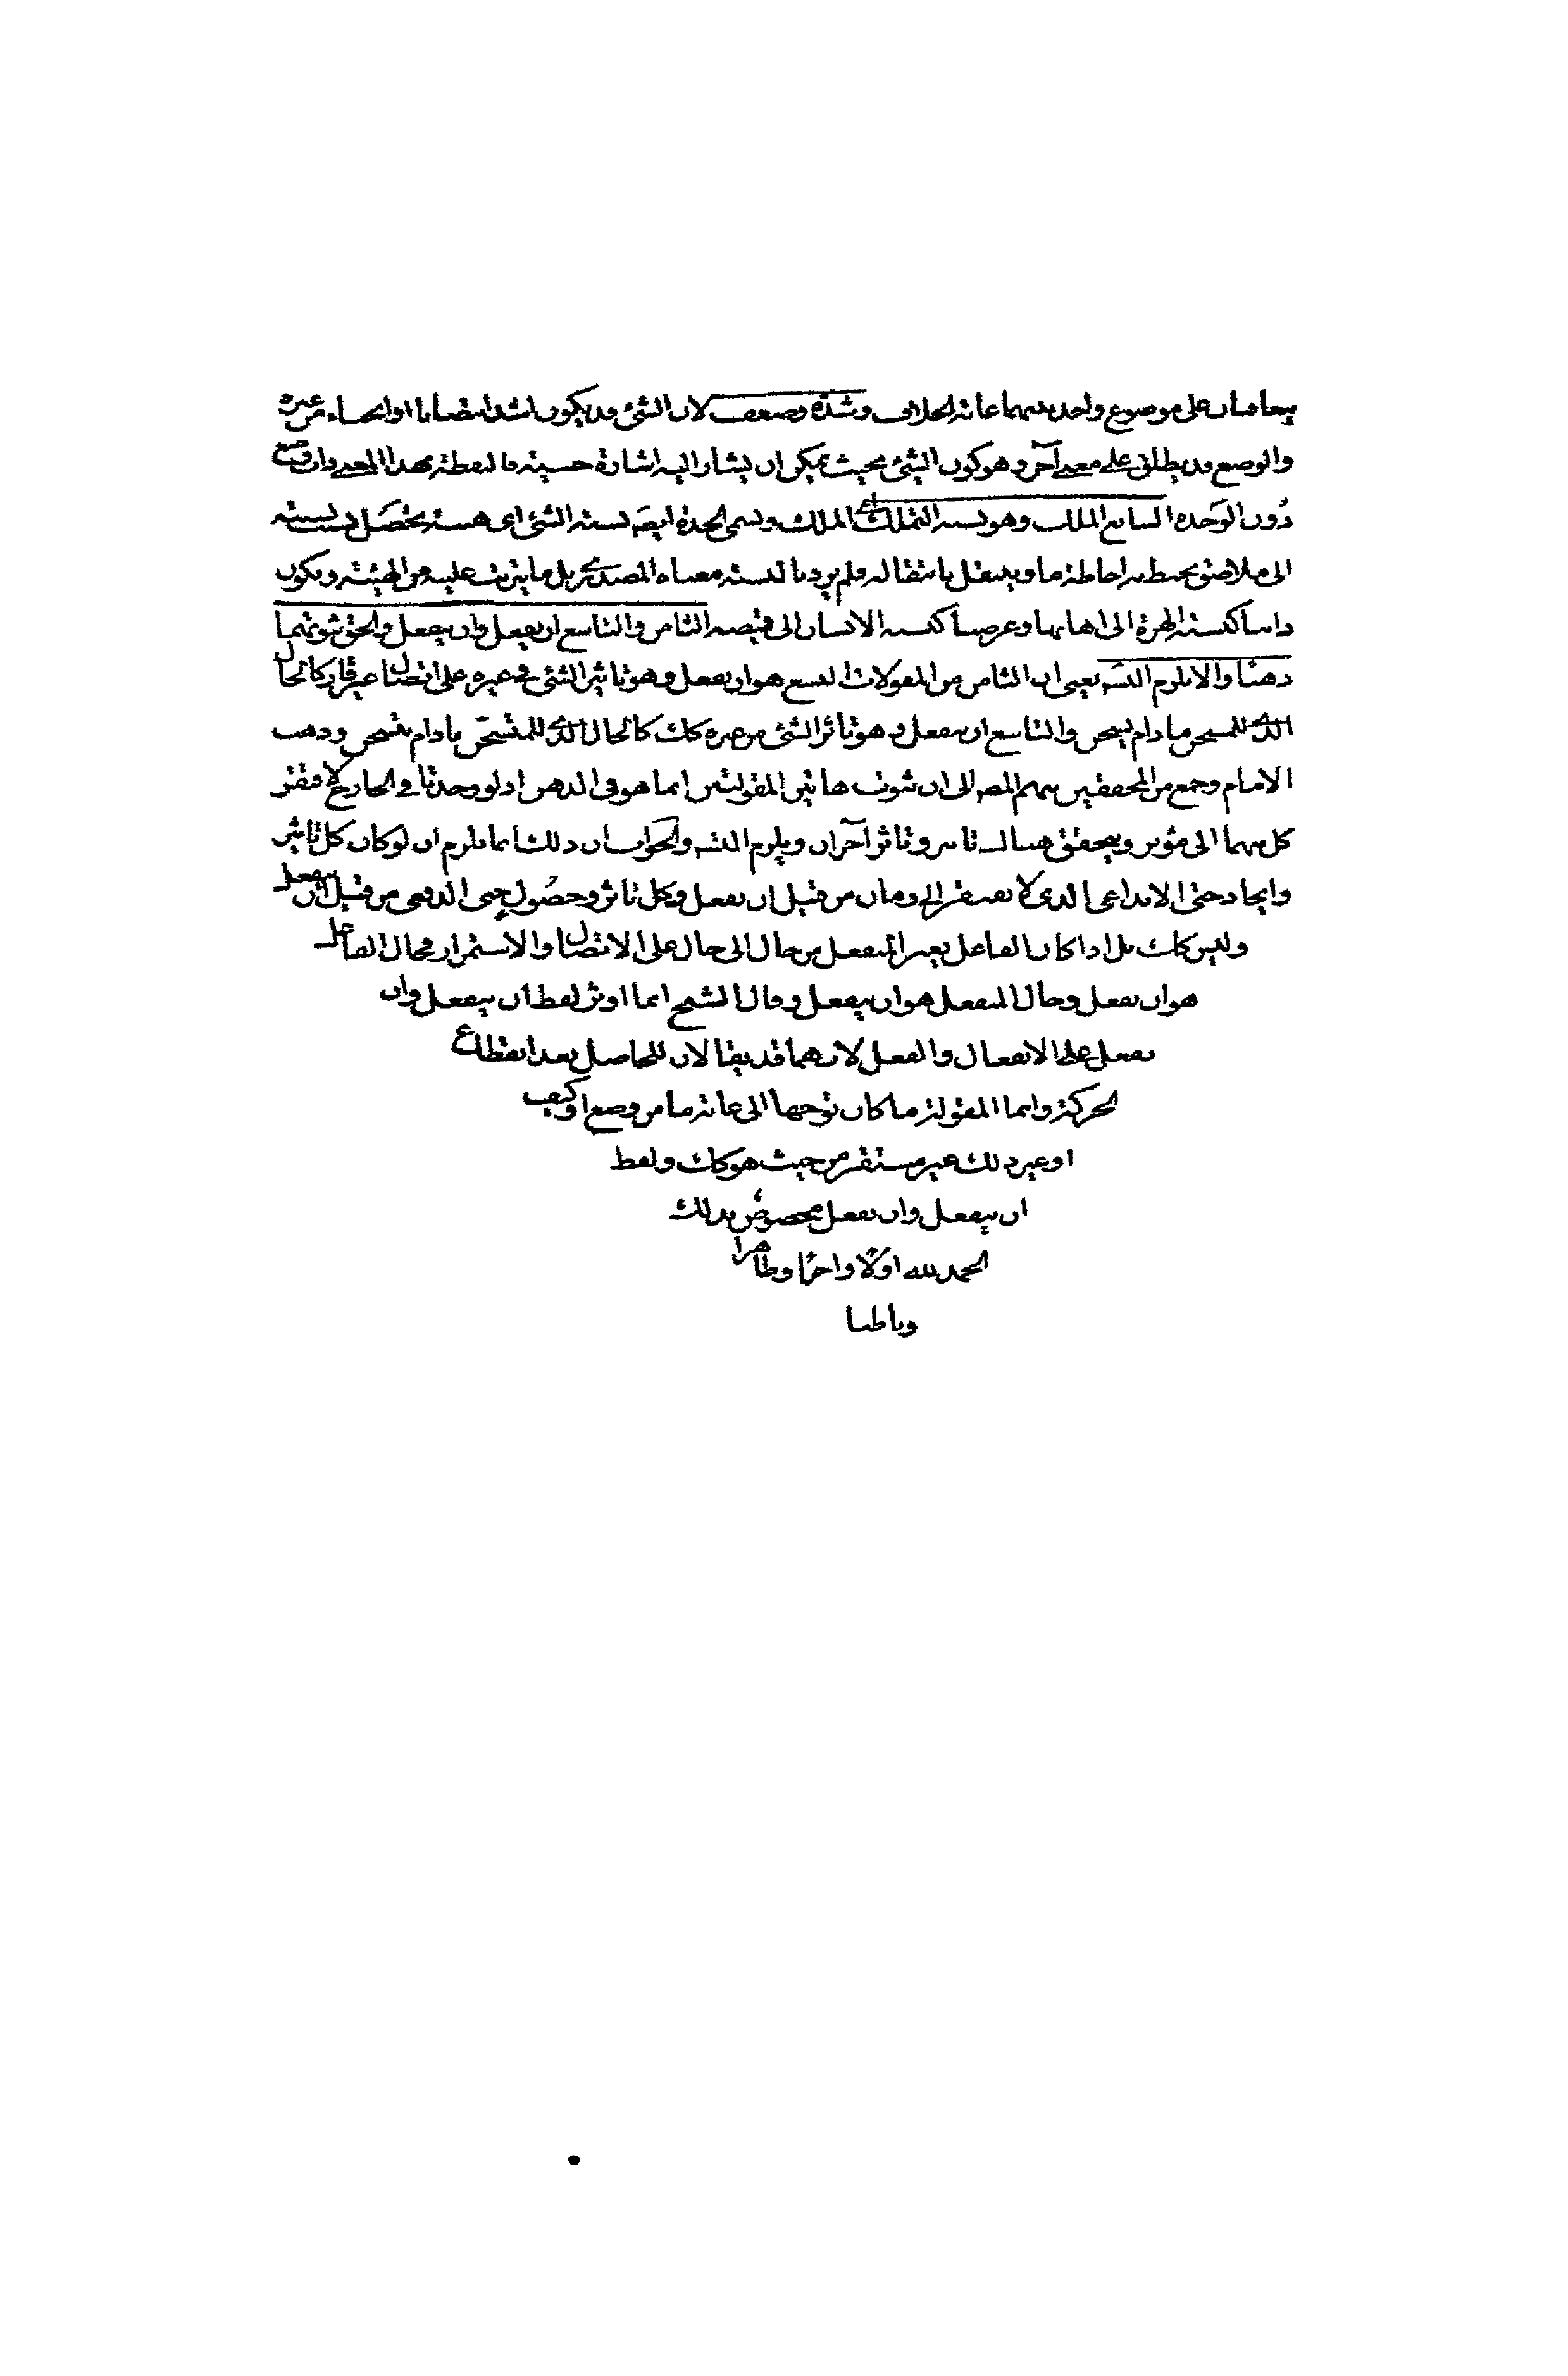 يتعاقبان على موضوع واحد بينهما غاية الخلاف وشدة وضعف لان الشئ قد يكون اشد انتصابا او انحناء من غيره
والوضع قد يطلق على معنى آخر وهو كون الشئ بحيث يمكن ان يشار اليه اشارة حسية فالنقطة بهذا المعنى ذات وضع
دون الوحدة السابع الملك وهو نسبة التملك اى الملك ويسمى الجدة ايضا نسبة الشئ اى هيئة يحصل بسبب نسبته
الى ملاصق يحيط به احاطة ما وينتقل بانتقاله ولم يرد بالنسبة معناه المصدرى بل ما يترتب عليه من الهيئة ويكون
ذاتيا كنسبة الهرة الى اهابها وعرضيا كنسبة الانسان الى قميصه الثامن والتاسع ان يفعل وان ينفعل والحق ثبوتهما
ذهنا والا يلزم التسلسل يعنى ان الثامن من المقولات التسع هو ان يفعل وهو تاثير الشئ فى غيره على اتصال غير قار كالحال
الذى للمسخن ما دام يسخن والتاسع ان ينفعل وهو تاثر الشئ من غيره كك كالحال الذى للمتسخن ما دام يتسخن وذهب
الامام وجمع من المحققين منهم المصـ الى ان ثبوت هاتين المقولتين انما هو فى الذهن اذ لو وجدتا فى الخارج لافتقر
كل منهما الى مؤثر ويتحقق هناك تاثير وتاثر آخران ويلزم التسـ والجواب ان ذلك انما يلزم ان لو كان كل تاثير
وايجاد حتى الابداعى الذى لا يفتقر الى زمان من قبيل ان يفعل وكل تاثر وحصول حتى الدفعى من قبيل ان ينفعل
وليس كك بل اذا كان الفاعل يغير المنفعل من حال الى حال على الاتصال والاستمرار فحال الفاعل
هو ان يفعل وحال المنفعل هو ان ينفعل وقال الشيخ انما اوثر لفظ ان ينفعل وان
يفعل على الانفعال والفعل لانهما قد يقالان للحاصل بعد انقطاع
الحركة وانما المقولة ما كان توجها الى غاية ما من وضع او كيف
او غير ذلك غير مستقر من حيث هو كك ولفظ
ان ينفعل وان يفعل مخصوص بذلك
الحمد لله اولا واخرا وظاهرا
وباطنا